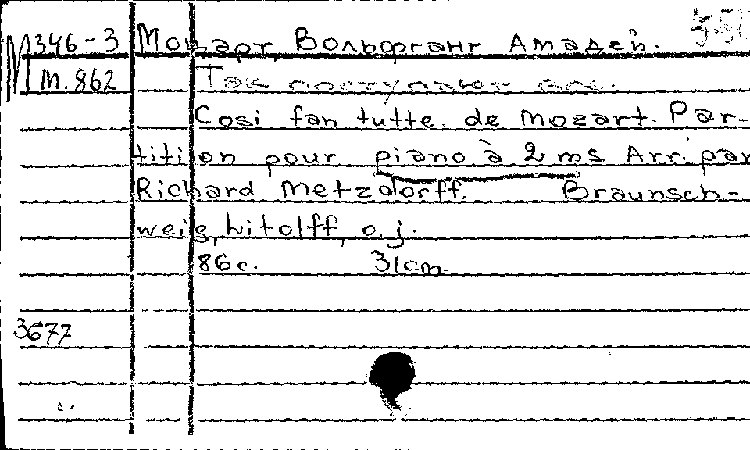 М346-3 Моцарт, Вольфганг Амадей.
М.862 Так поступают все.
Cosi fan tutte. de Mozart. Par-
tition pour piano à 2 ms Arr. par
Richard Metzdorff. Braunsch-
weig, Litolff, o.j.
86 c. 31cm.
3677